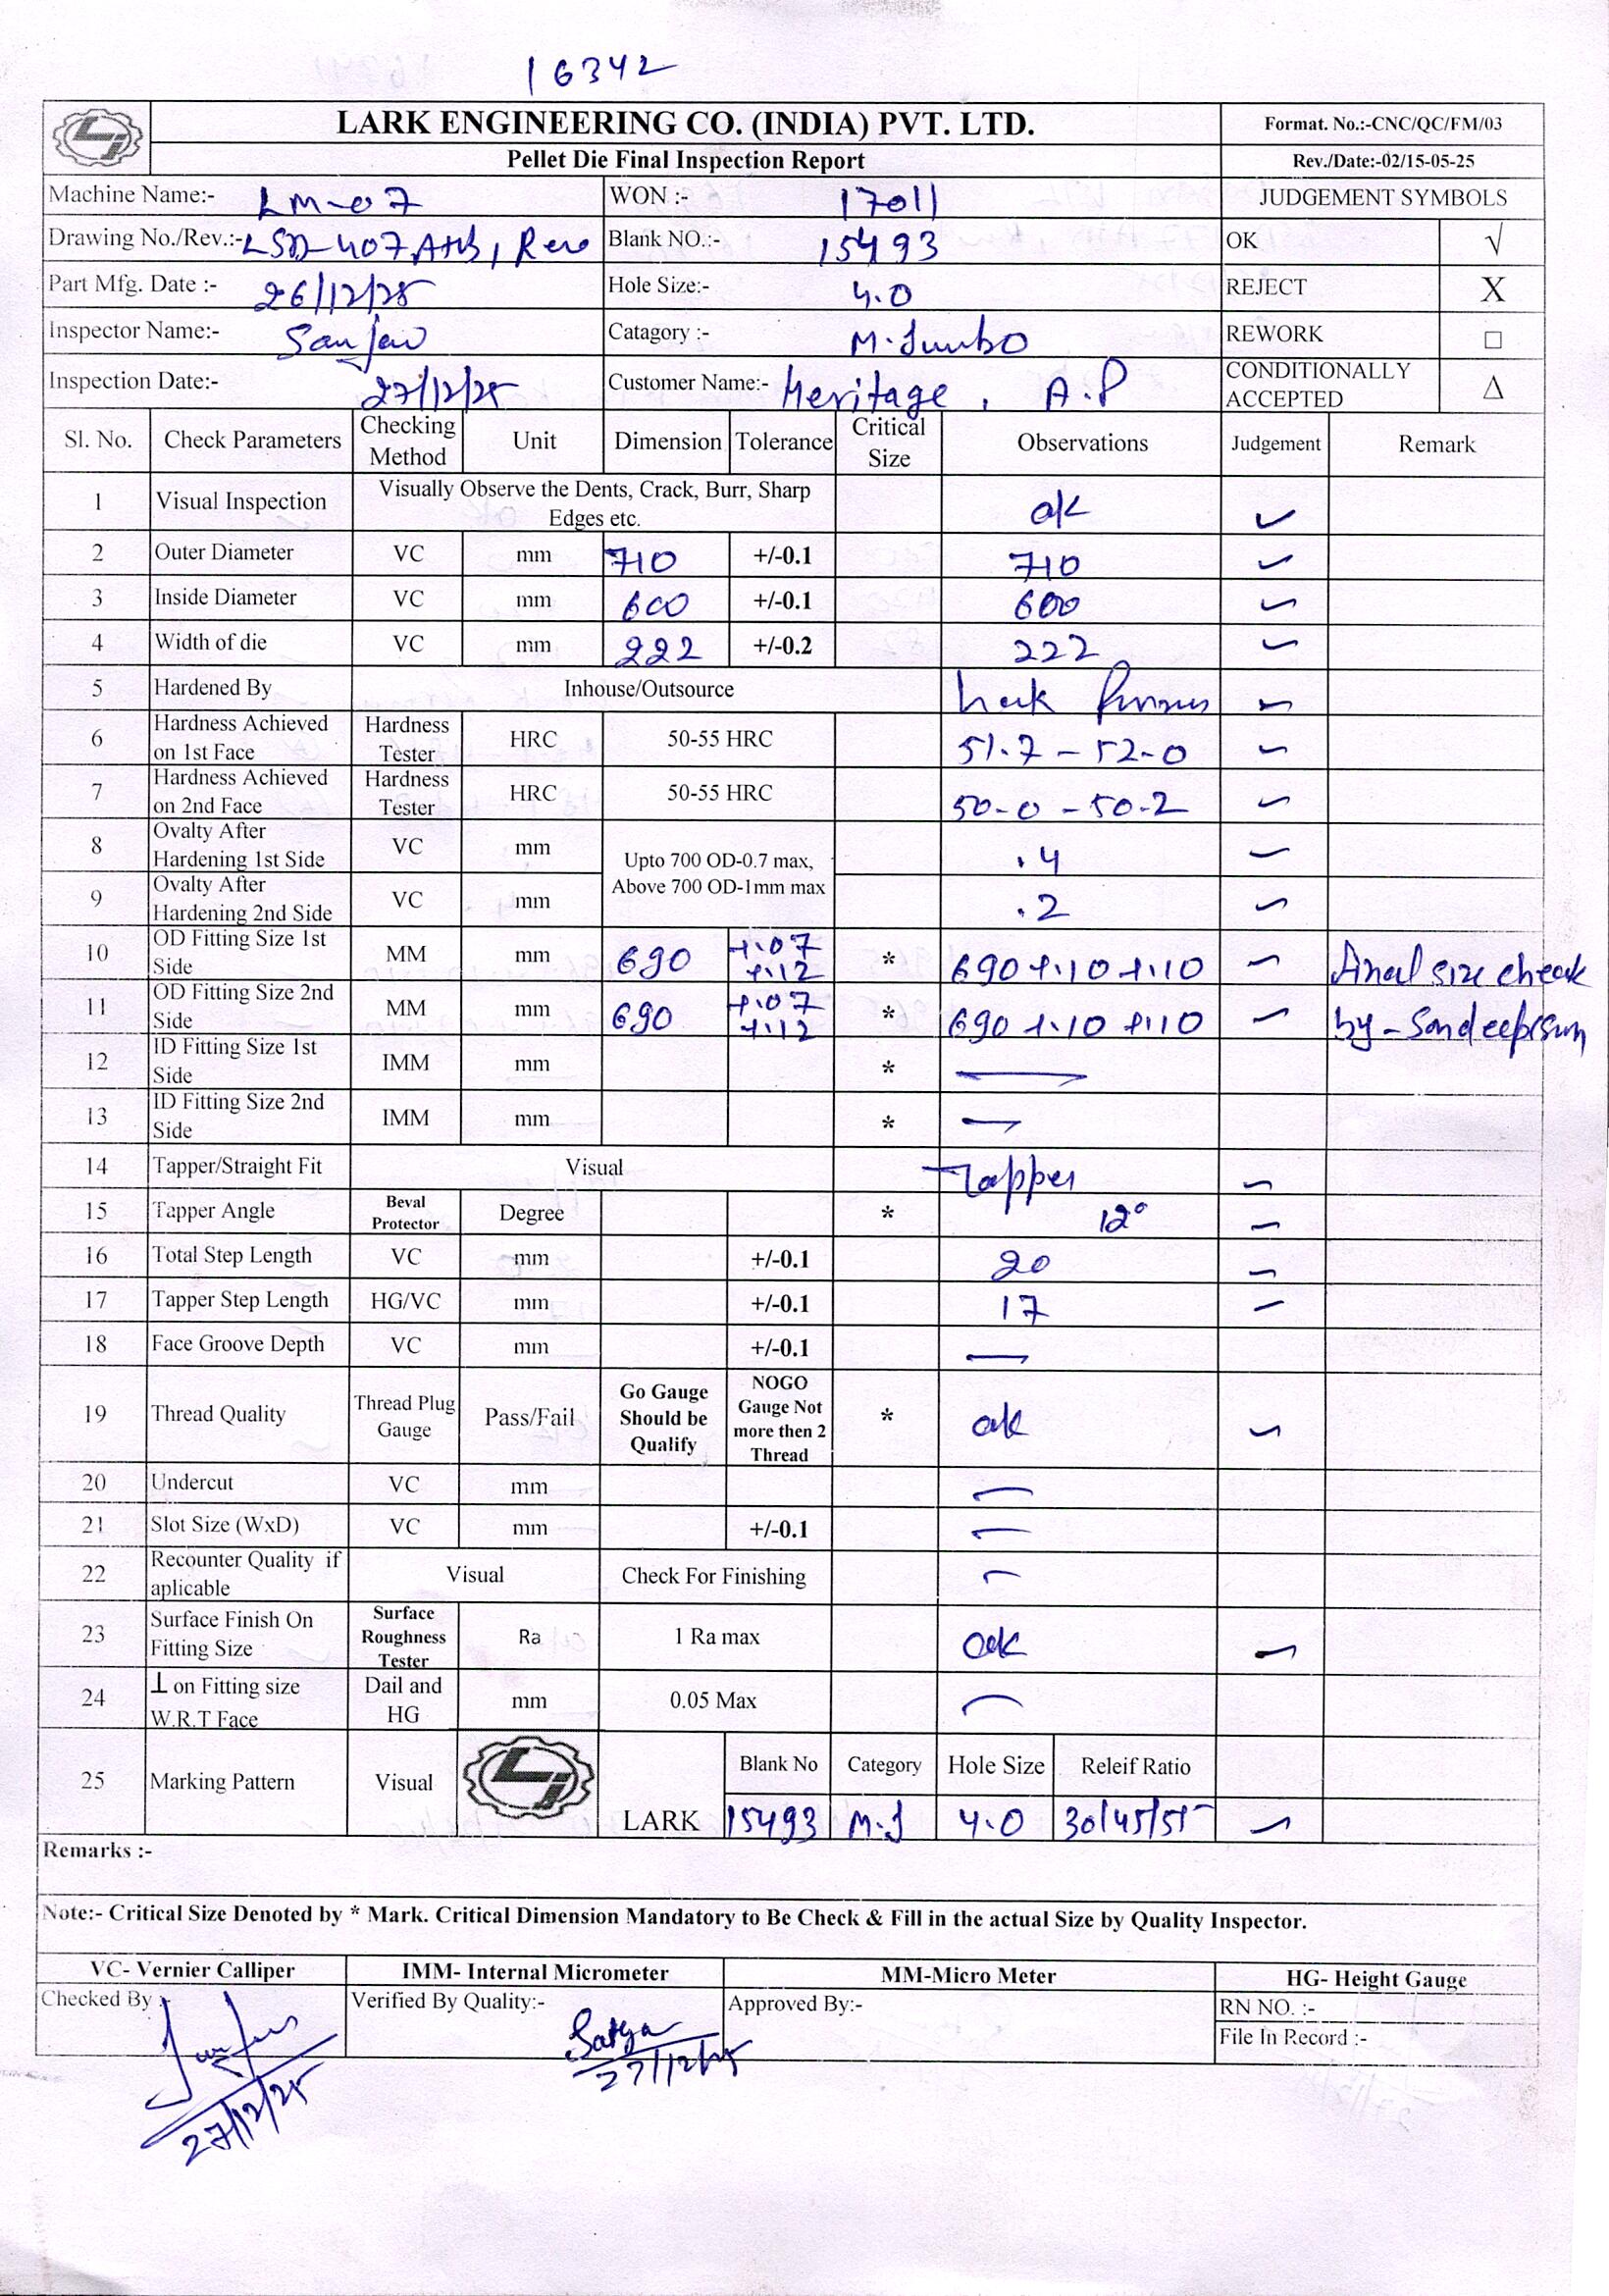 16342
LARK ENGINEERING CO. (INDIA) PVT. LTD.
Format. No.:-CNC/QC/FM/03
Pellet Die Final Inspection Report
Rev./Date:-02/15-05-25
Machine Name:- LM-07 WON :- 17011 JUDGEMENT SYMBOLS
Drawing No./Rev.:- Blank NO.:- 15493 OK √
Part Mfg. Date :- 26/12/25 Hole Size:- 4.0 REJECT X
Inspector Name:- Catagory :- M.Jumbo REWORK □
Inspection Date:- 27/12/25 Customer Name:- Heritage, A.P CONDITIONALLY ACCEPTED Δ
Sl. No. Check Parameters Checking Method Unit Dimension Tolerance Critical Size Observations Judgement Remark
1 Visual Inspection Visually Observe the Dents, Crack, Burr, Sharp Edges etc. ok ✓
2 Outer Diameter VC mm 710 +/-0.1 710 ✓
3 Inside Diameter VC mm 600 +/-0.1 600 ✓
4 Width of die VC mm 222 +/-0.2 222 ✓
5 Hardened By Inhouse/Outsource ✓
6 Hardness Achieved on 1st Face Hardness Tester HRC 50-55 HRC 51.7 - 52.0 ✓
7 Hardness Achieved on 2nd Face Hardness Tester HRC 50-55 HRC 50.0 - 50.2 ✓
8 Ovalty After Hardening 1st Side VC mm Upto 700 OD-0.7 max, Above 700 OD-1mm max .4 ✓
9 Ovalty After Hardening 2nd Side VC mm .2 ✓
10 OD Fitting Size 1st Side MM mm 690 +.07 +.12 * 690 +.10 +.10 ✓ final size check
11 OD Fitting Size 2nd Side MM mm 690 +.07 +.12 * 690 +.10 +.10 ✓ by - Sandeep
12 ID Fitting Size 1st Side IMM mm * —
13 ID Fitting Size 2nd Side IMM mm * —
14 Tapper/Straight Fit Visual Tapper ✓
15 Tapper Angle Beval Protector Degree * 12° ✓
16 Total Step Length VC mm +/-0.1 20 ✓
17 Tapper Step Length HG/VC mm +/-0.1 17 ✓
18 Face Groove Depth VC mm +/-0.1 —
19 Thread Quality Thread Plug Gauge Pass/Fail Go Gauge Should be Qualify NOGO Gauge Not more then 2 Thread * ok ✓
20 Undercut VC mm —
21 Slot Size (WxD) VC mm +/-0.1 —
22 Recounter Quality if aplicable Visual Check For Finishing —
23 Surface Finish On Fitting Size Surface Roughness Tester Ra 1 Ra max ok ✓
24 ⊥ on Fitting size W.R.T Face Dail and HG mm 0.05 Max —
25 Marking Pattern Visual LARK Blank No Category Hole Size Releif Ratio
15493 M.J 4.0 30/45/55 ✓
Remarks :-
Note:- Critical Size Denoted by * Mark. Critical Dimension Mandatory to Be Check & Fill in the actual Size by Quality Inspector.
VC- Vernier Calliper IMM- Internal Micrometer MM-Micro Meter HG- Height Gauge
Checked By :- Verified By Quality:- Satya Approved By:- RN NO. :-
File In Record :-
27/12/25
27/12/25